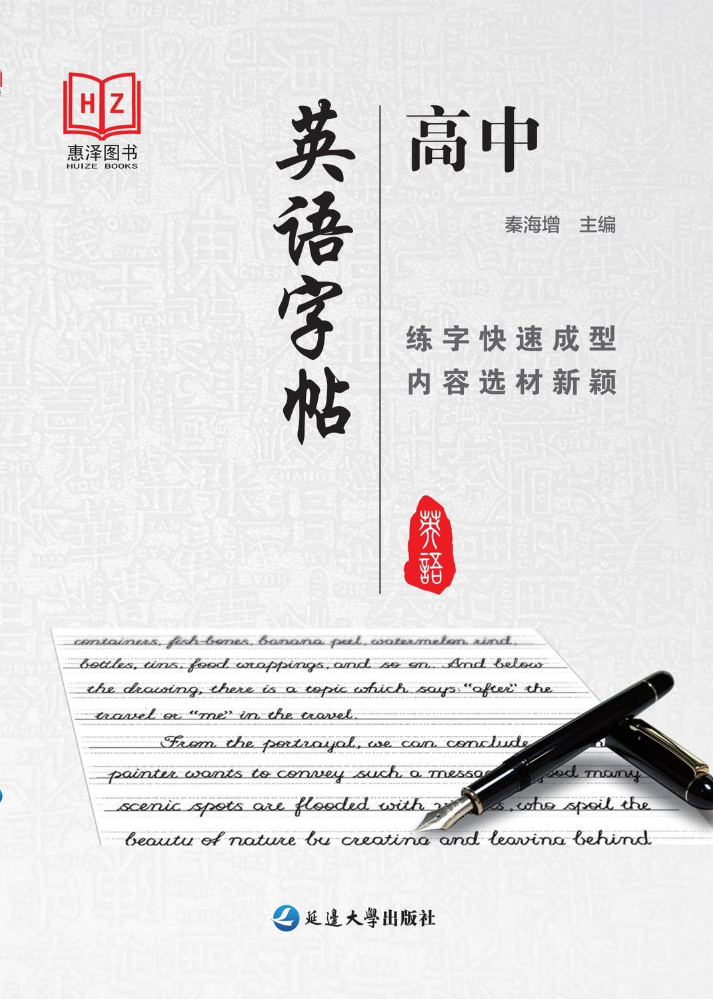 HZ
惠泽图书
HUIZE BOOKS
英语字帖
高中
秦海增 主编
练字快速成型
内容选材新颖
英語
containers, fish-bones, banana peel, watermelon rind,
bottles, tins, food wrappings, and so on. And below
the drawing, there is a topic which says: "after" the
travel or "me" in the travel.
From the portrayal, we can conclude
painter wants to convey such a many
scenic spots are flooded with , who spoil the
beauty of nature by creating and leaving behind
延邊大學出版社